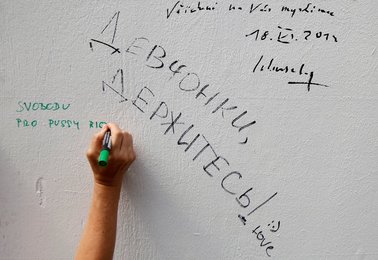 Všichni na Vás myslíme
ДЕВЧОНКИ,
ДЕРЖИТЕСЬ!
:) LOVE
SVOBODU
PRO PUSSY RIO